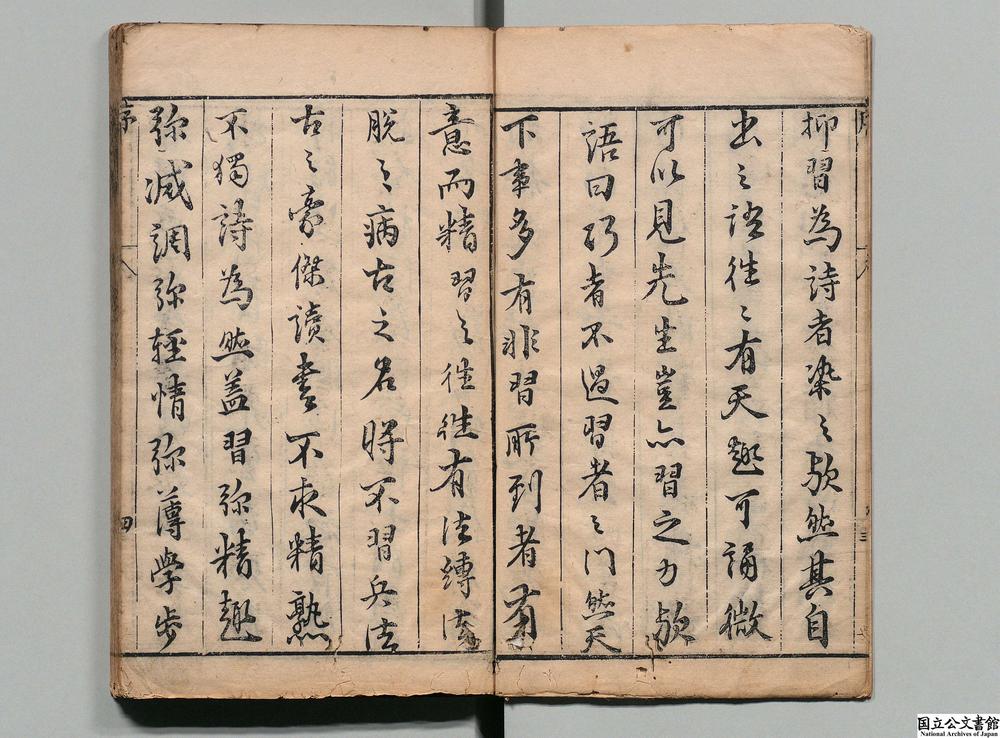 抑習為詩者染〻歟然其自
出之語往〻有天趣可誦微
可以見先生豈亦習之力歟
語曰巧者不過習者之門然天
下事多有非習所到者有
意而精習之往往有法縛法
脫之病古之名將不習兵法
古之豪傑讀書不求精熟
不獨詩為然蓋習弥精趣
弥減調弥輕情弥薄學步
序
四
国立公文書館
National Archives of Japan